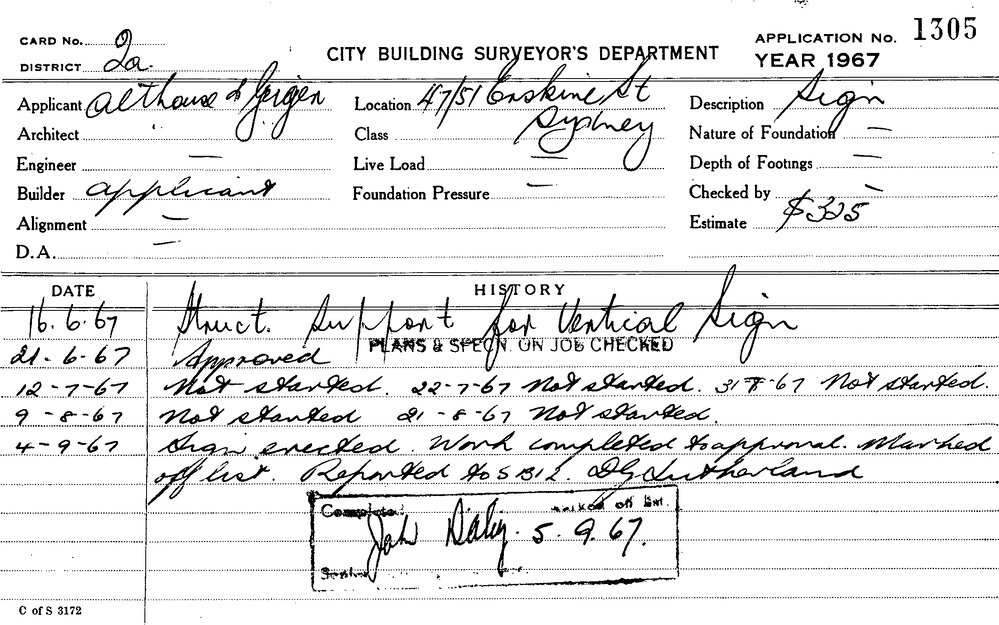 CARD No. 2a
DISTRICT
CITY BUILDING SURVEYOR'S DEPARTMENT
APPLICATION No. 1305
YEAR 1967
Applicant Althouse & Geiger
Location 47/51 Erskine St
Sydney
Description Sign
Architect
Class
Nature of Foundation —
Engineer —
Live Load —
Depth of Footings —
Builder applicant
Foundation Pressure —
Checked by —
Alignment —
Estimate $325
D.A. —
DATE HISTORY
16.6.67 Struct. Support for Vertical Sign
21-6-67 Approved
PLANS & SPECN. ON JOB CHECKED
12-7-67 Not started. 22-7-67 Not started. 31-7-67 Not started.
9-8-67 Not started 21-8-67 Not started.
4-9-67 Sign erected. Work completed to approval. Marked
off list. Reported to S.B.I.2. Sutherland
Completed marked off list.
5.9.67.
C of S 3172